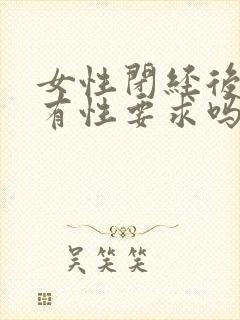 女性閉経後
有性要求吗
吴笑笑